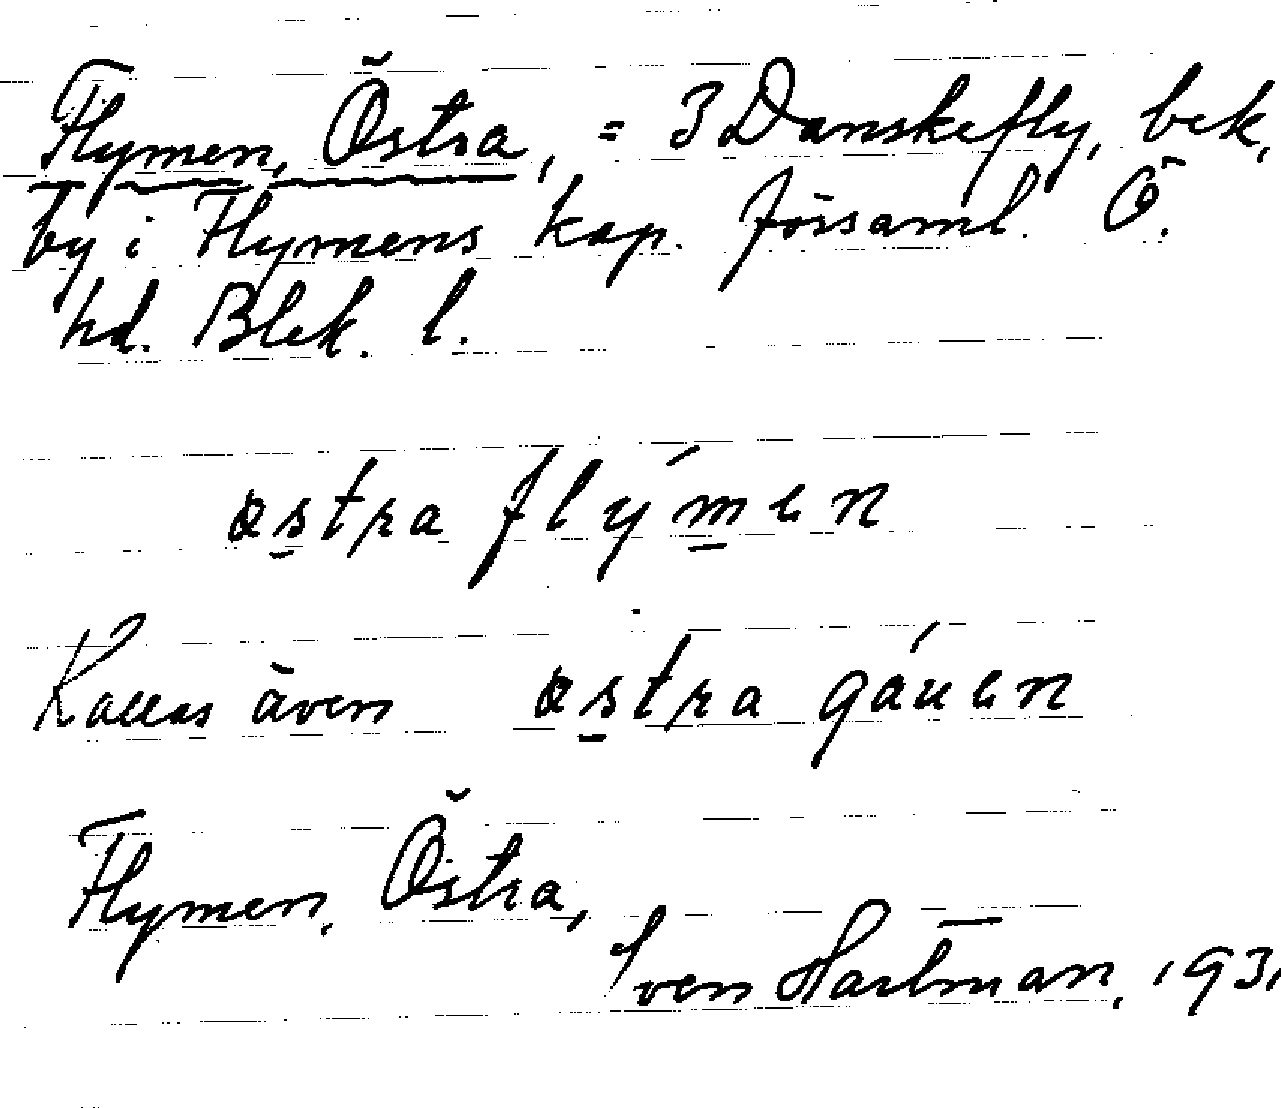 Flymen, Östra, = 3 Danskefly, bek,
by i Flymens kap. församl. Ö.
hd. Blek. l.
østra flýmen
Kallas även østra gáuen
Flymen, Östra,
Sven Hartman, 1931